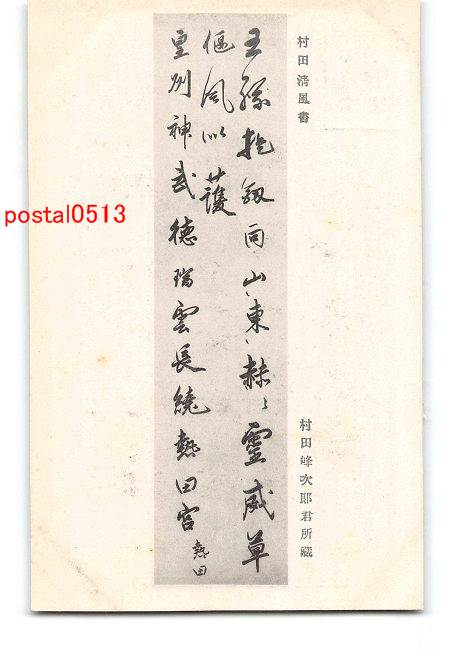 村田清風書
村田峰次郎君所藏
王孫抱釼向山東赫々靈威草
偃風以護
皇州神武德瑞雲長繞熱田宮
熱田
postal0513